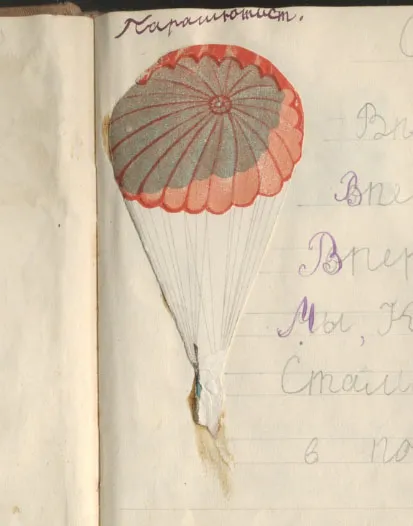 Парашютист.
С
Впе
Впе
Впер
Мы, К
Стали
в по